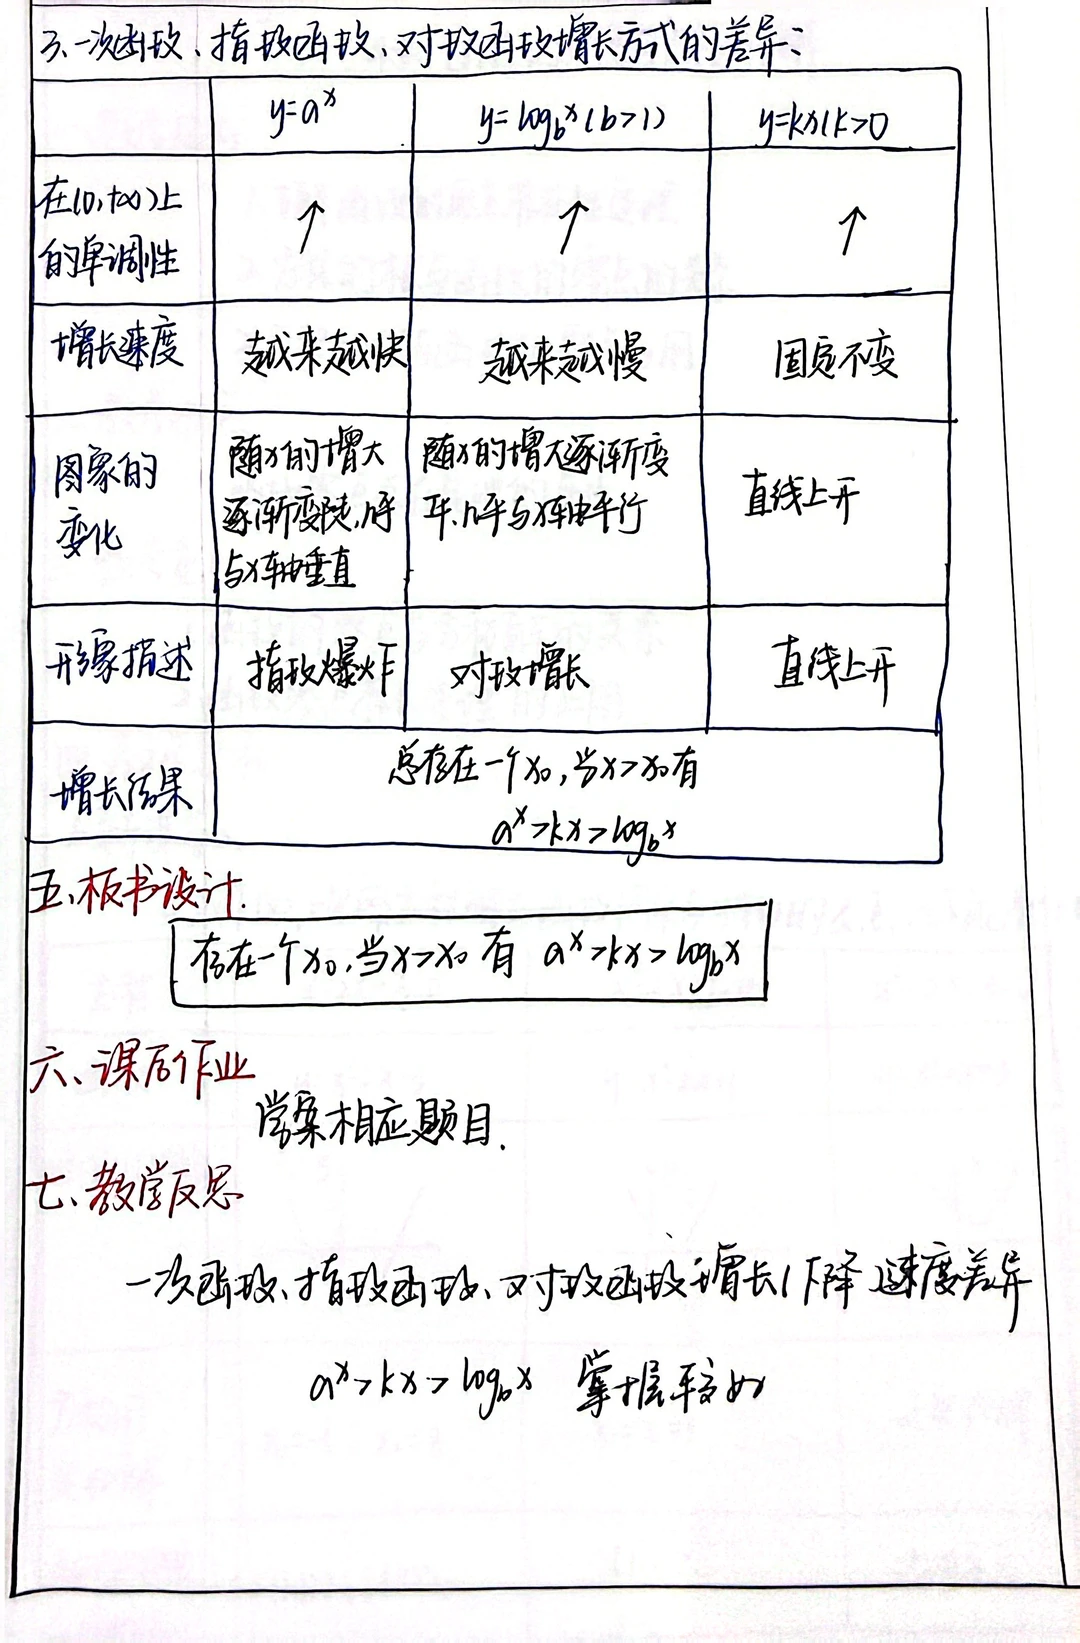 3、一次函数、指数函数、对数函数增长方式的差异:
y=aˣ
y=log_b x (b>1)
y=kx(k>0
在(0,+∞)上
的单调性
↑
↑
↑
增长速度
越来越快
越来越慢
固定不变
图象的
变化
随x的增大
逐渐变陡,几乎
与x轴垂直
随x的增大逐渐变
平,几乎与x轴平行
直线上升
形象描述
指数爆炸
对数增长
直线上升
增长结果
总存在一个x₀,当x>x₀有
aˣ>kx>log_b x
五、板书设计.
存在一个x₀,当x>x₀ 有 aˣ>kx>log_b x
六、课后作业
学案相应题目.
七、教学反思
一次函数、指数函数、对数函数增长(下降)速度差异
aˣ>kx>log_b x 掌握较好